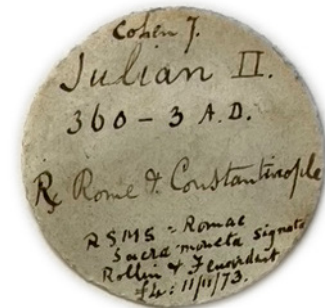 Cohen 7.
Julian II.
360 - 3 A.D.
Rx Rome & Constantinople
RSMS = Romae
Sacra moneta signata
Rollin & Feuardent
f4: 11/11/73.